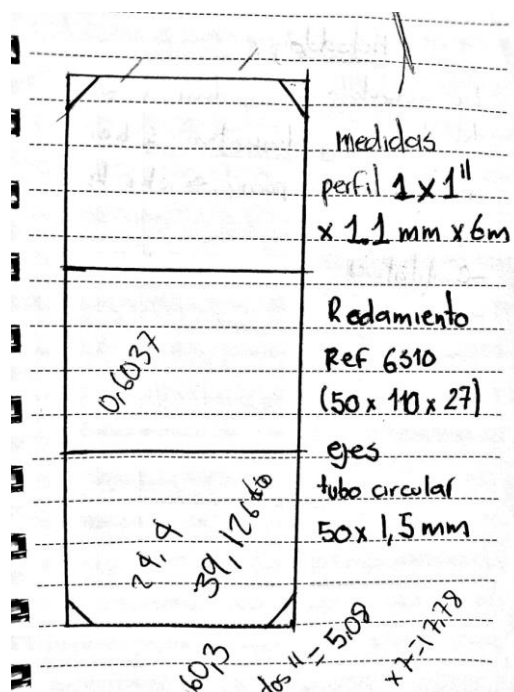 medidas
perfil 1 x 1"
x 1.1 mm x 6m
Rodamiento
Ref 6310
(50 x 110 x 27)
ejes
tubo circular
50 x 1,5 mm
0,6037
24,9
60,3
dos " = 5,08
x 7 = 17,78